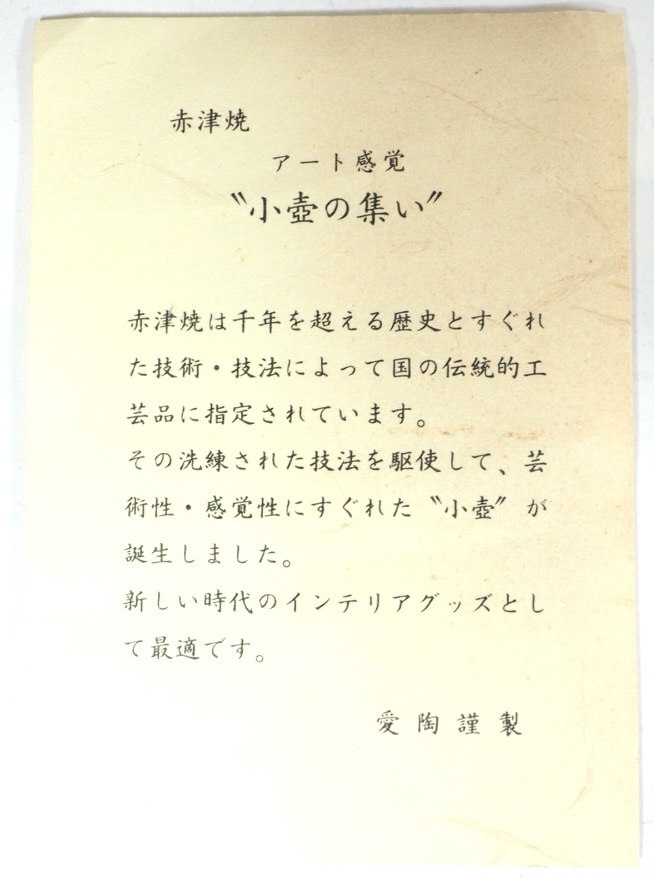 赤津焼
アート感覚
〝小壺の集い〞
赤津焼は千年を超える歴史とすぐれ
た技術・技法によって国の伝統的工
芸品に指定されています。
その洗練された技法を駆使して、芸
術性・感覚性にすぐれた〝小壺〞が
誕生しました。
新しい時代のインテリアグッズとし
て最適です。
愛陶謹製